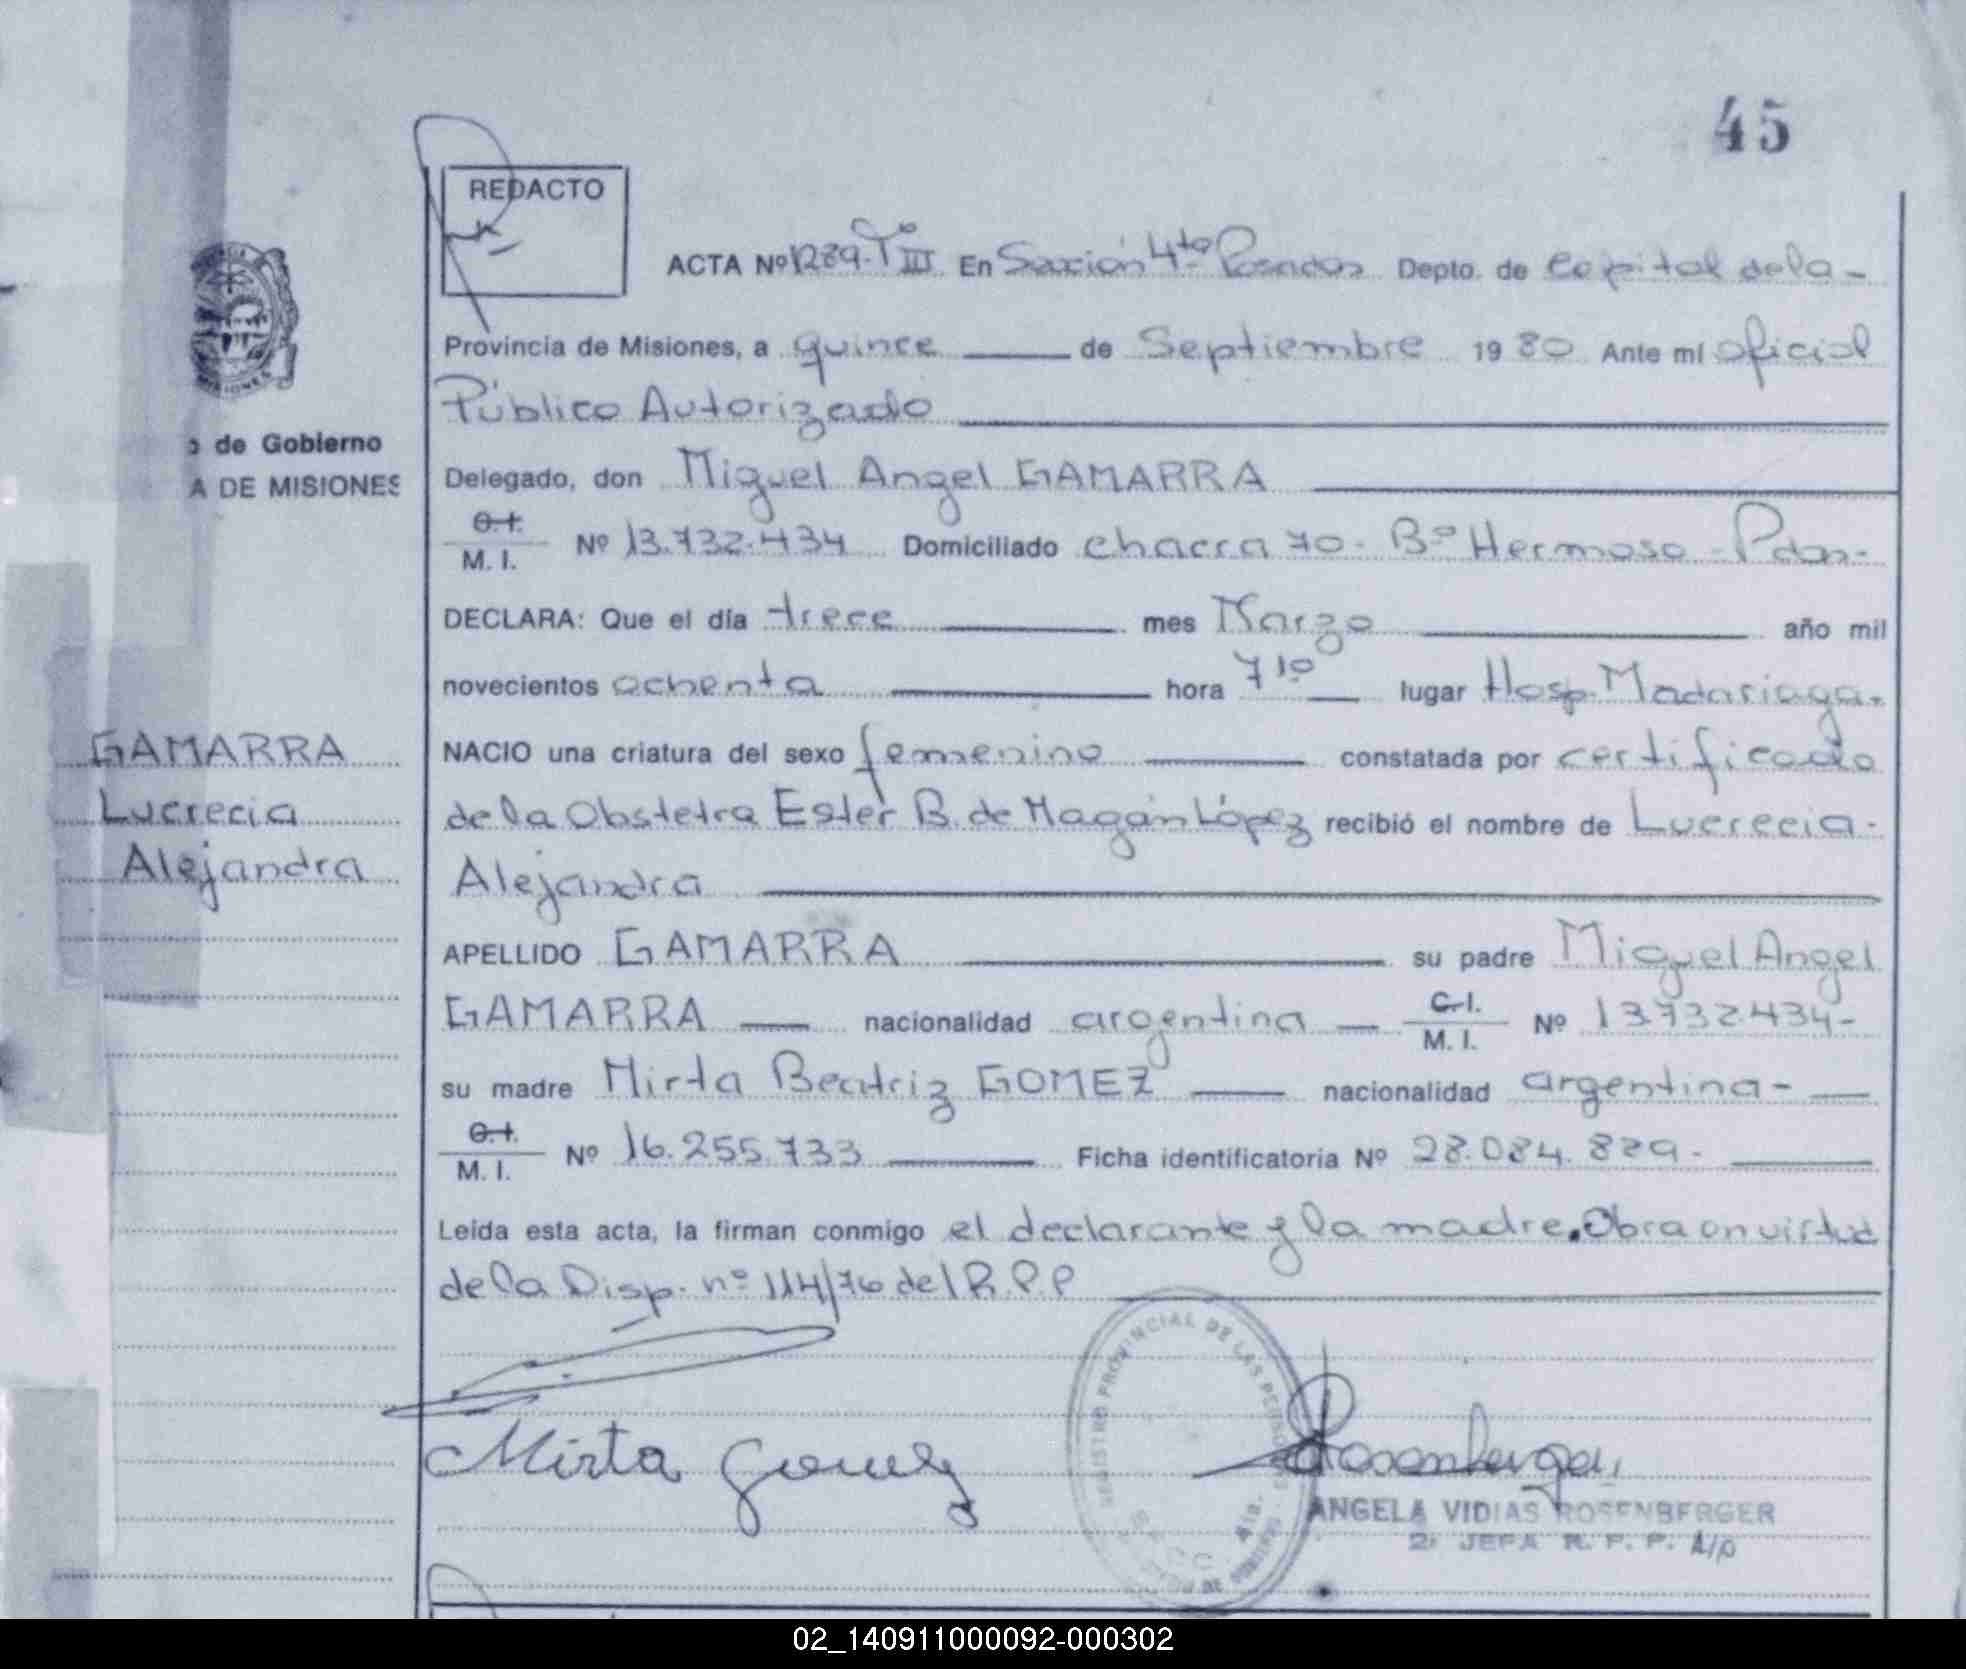 45
REDACTO
ACTA Nº 1289-Tº III En Sección 4ta Posadas Depto. de Capital de la-
Provincia de Misiones, a quince de Septiembre 1980 Ante mí oficial
Público Autorizado
Delegado, don Miguel Angel GAMARRA
C.I. M. I. Nº 13.732.434 Domiciliado chacra 70- Bº Hermoso- Pdas-
DECLARA: Que el día trece mes Marzo año mil
novecientos ochenta hora 7 10 lugar Hosp. Madariaga.
NACIO una criatura del sexo femenino constatada por certificado
de la Obstetra Ester B. de Magán López recibió el nombre de Lucrecia-
Alejandra
APELLIDO GAMARRA su padre Miguel Angel
GAMARRA nacionalidad argentina C.I. M. I. Nº 13.732.434-
su madre Mirta Beatriz GOMEZ nacionalidad argentina-
C.I. M. I. Nº 16.255.733 Ficha identificatoria Nº 28.084.829-
Leída esta acta, la firman conmigo el declarante y la madre. Obra en virtud
de la Disp. nº 114/76 del R.P.P
de Gobierno
A DE MISIONES
GAMARRA
Lucrecia
Alejandra
Mirta Gomez
Rosenberger
REGISTRO PROVINCIAL DE LAS PERSONAS
ANGELA VIDIAS ROSENBERGER
2º JEFA R. P. P. A/p
02_140911000092-000302